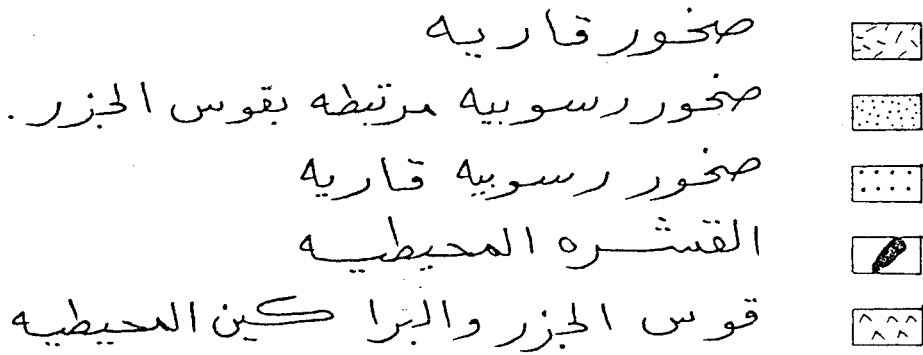 صخور قاريه
صخور رسوبيه مرتبطه بقوس الجزر.
صخور رسوبيه قاريه
القشره المحيطيه
قوس الجزر والبراكين المحيطيه